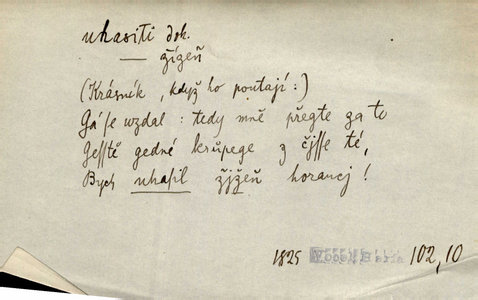 uhasiti dok.
— žízeň
(Krásník, když ho poutají:)
Gá se wzdal: tedy mně přegte za to
Gesstě gedné krůpege z čjsse té,
Bych uhasil žjžeň horaucj!
1825 102,10